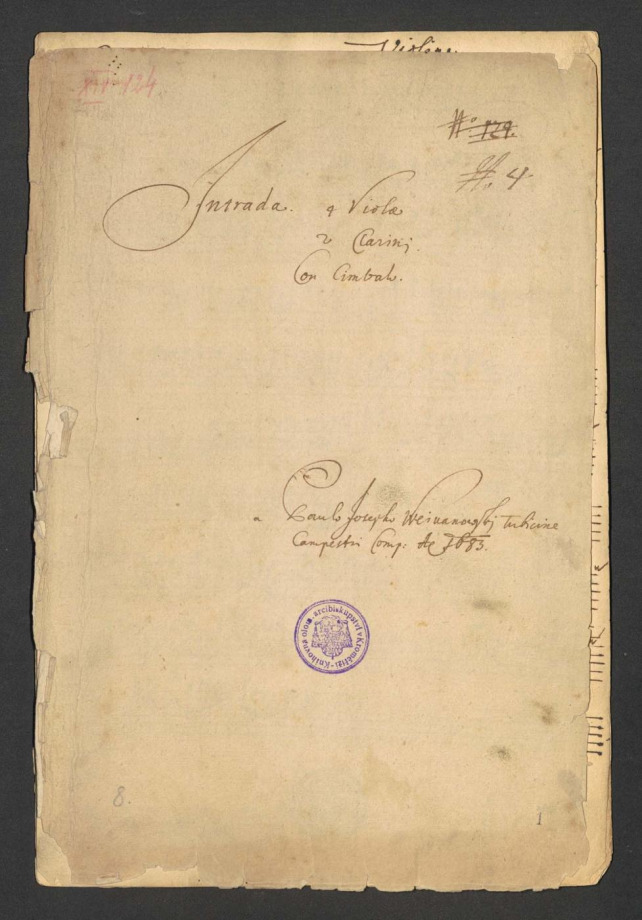 Violone.
XIV 124
No 129.
No 4
Intrada. 4 Violæ
2 Clarini.
Con Cimbalo.
a Paulo Josepho Weiuanowskÿ tubicine
Campestri Comp: Ao 1683.
Knihovna olom. arcibiskupství v Kroměříži
8.
1